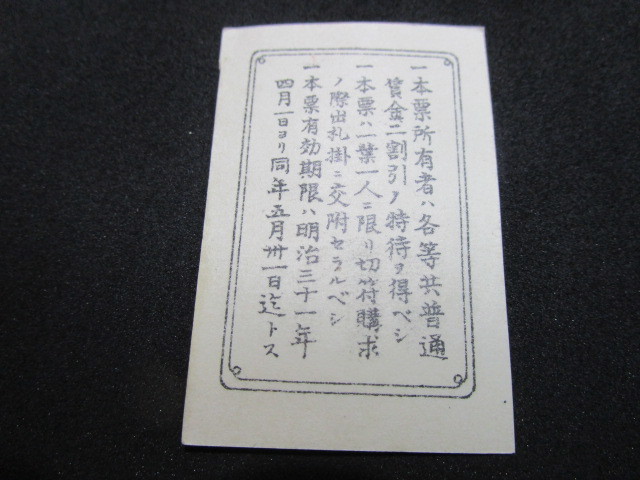 一本票所有者ハ各等共普通
賃金二割引ノ特待ヲ得ベシ
一本票ハ一葉一人ニ限リ切符購求
ノ際出札掛ニ交附セラルベシ
一本票有効期限ハ明治三十一年
四月一日ヨリ同年五月卅一日迄トス